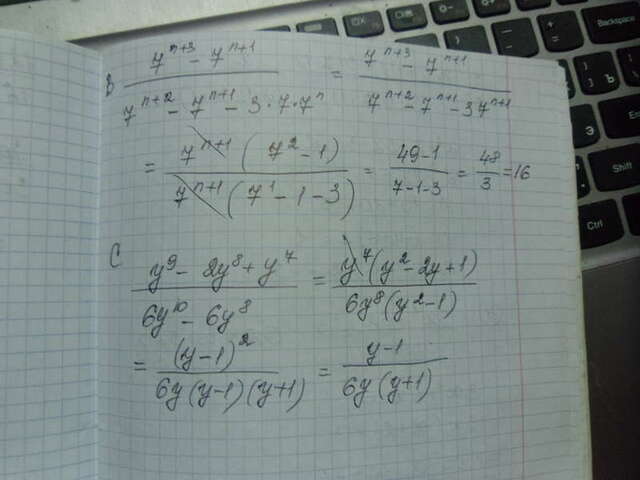 B (7^(n+3) - 7^(n+1)) / (7^(n+2) - 7^(n+1) - 3·7·7^n) = (7^(n+3) - 7^(n+1)) / (7^(n+2) - 7^(n+1) - 3 7^(n+1))
= 7^(n+1) (7^2 - 1) / 7^(n+1) (7^1 - 1 - 3) = (49-1) / (7-1-3) = 48/3 = 16
C (y^9 - 2y^8 + y^7) / (6y^10 - 6y^8) = y^7 (y^2 - 2y + 1) / 6y^8 (y^2 - 1)
= (y-1)^2 / 6y (y-1) (y+1) = (y-1) / 6y (y+1)
Backspace
Enter
Shift
Ctrl